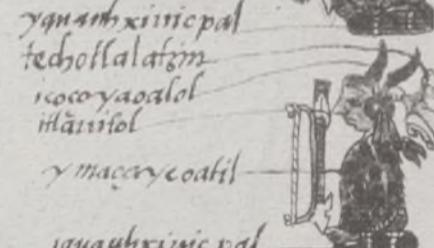 yquauhxiuicpal
techotlalatzin
icocoyaoalol
itlāuitol
ymaçaycoatil
iquauhxiuicpal